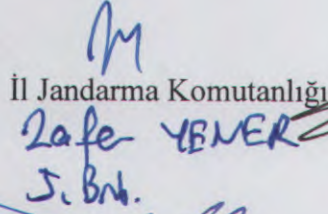 İl Jandarma Komutanlığı
Zafer YENER
J. Bnb.